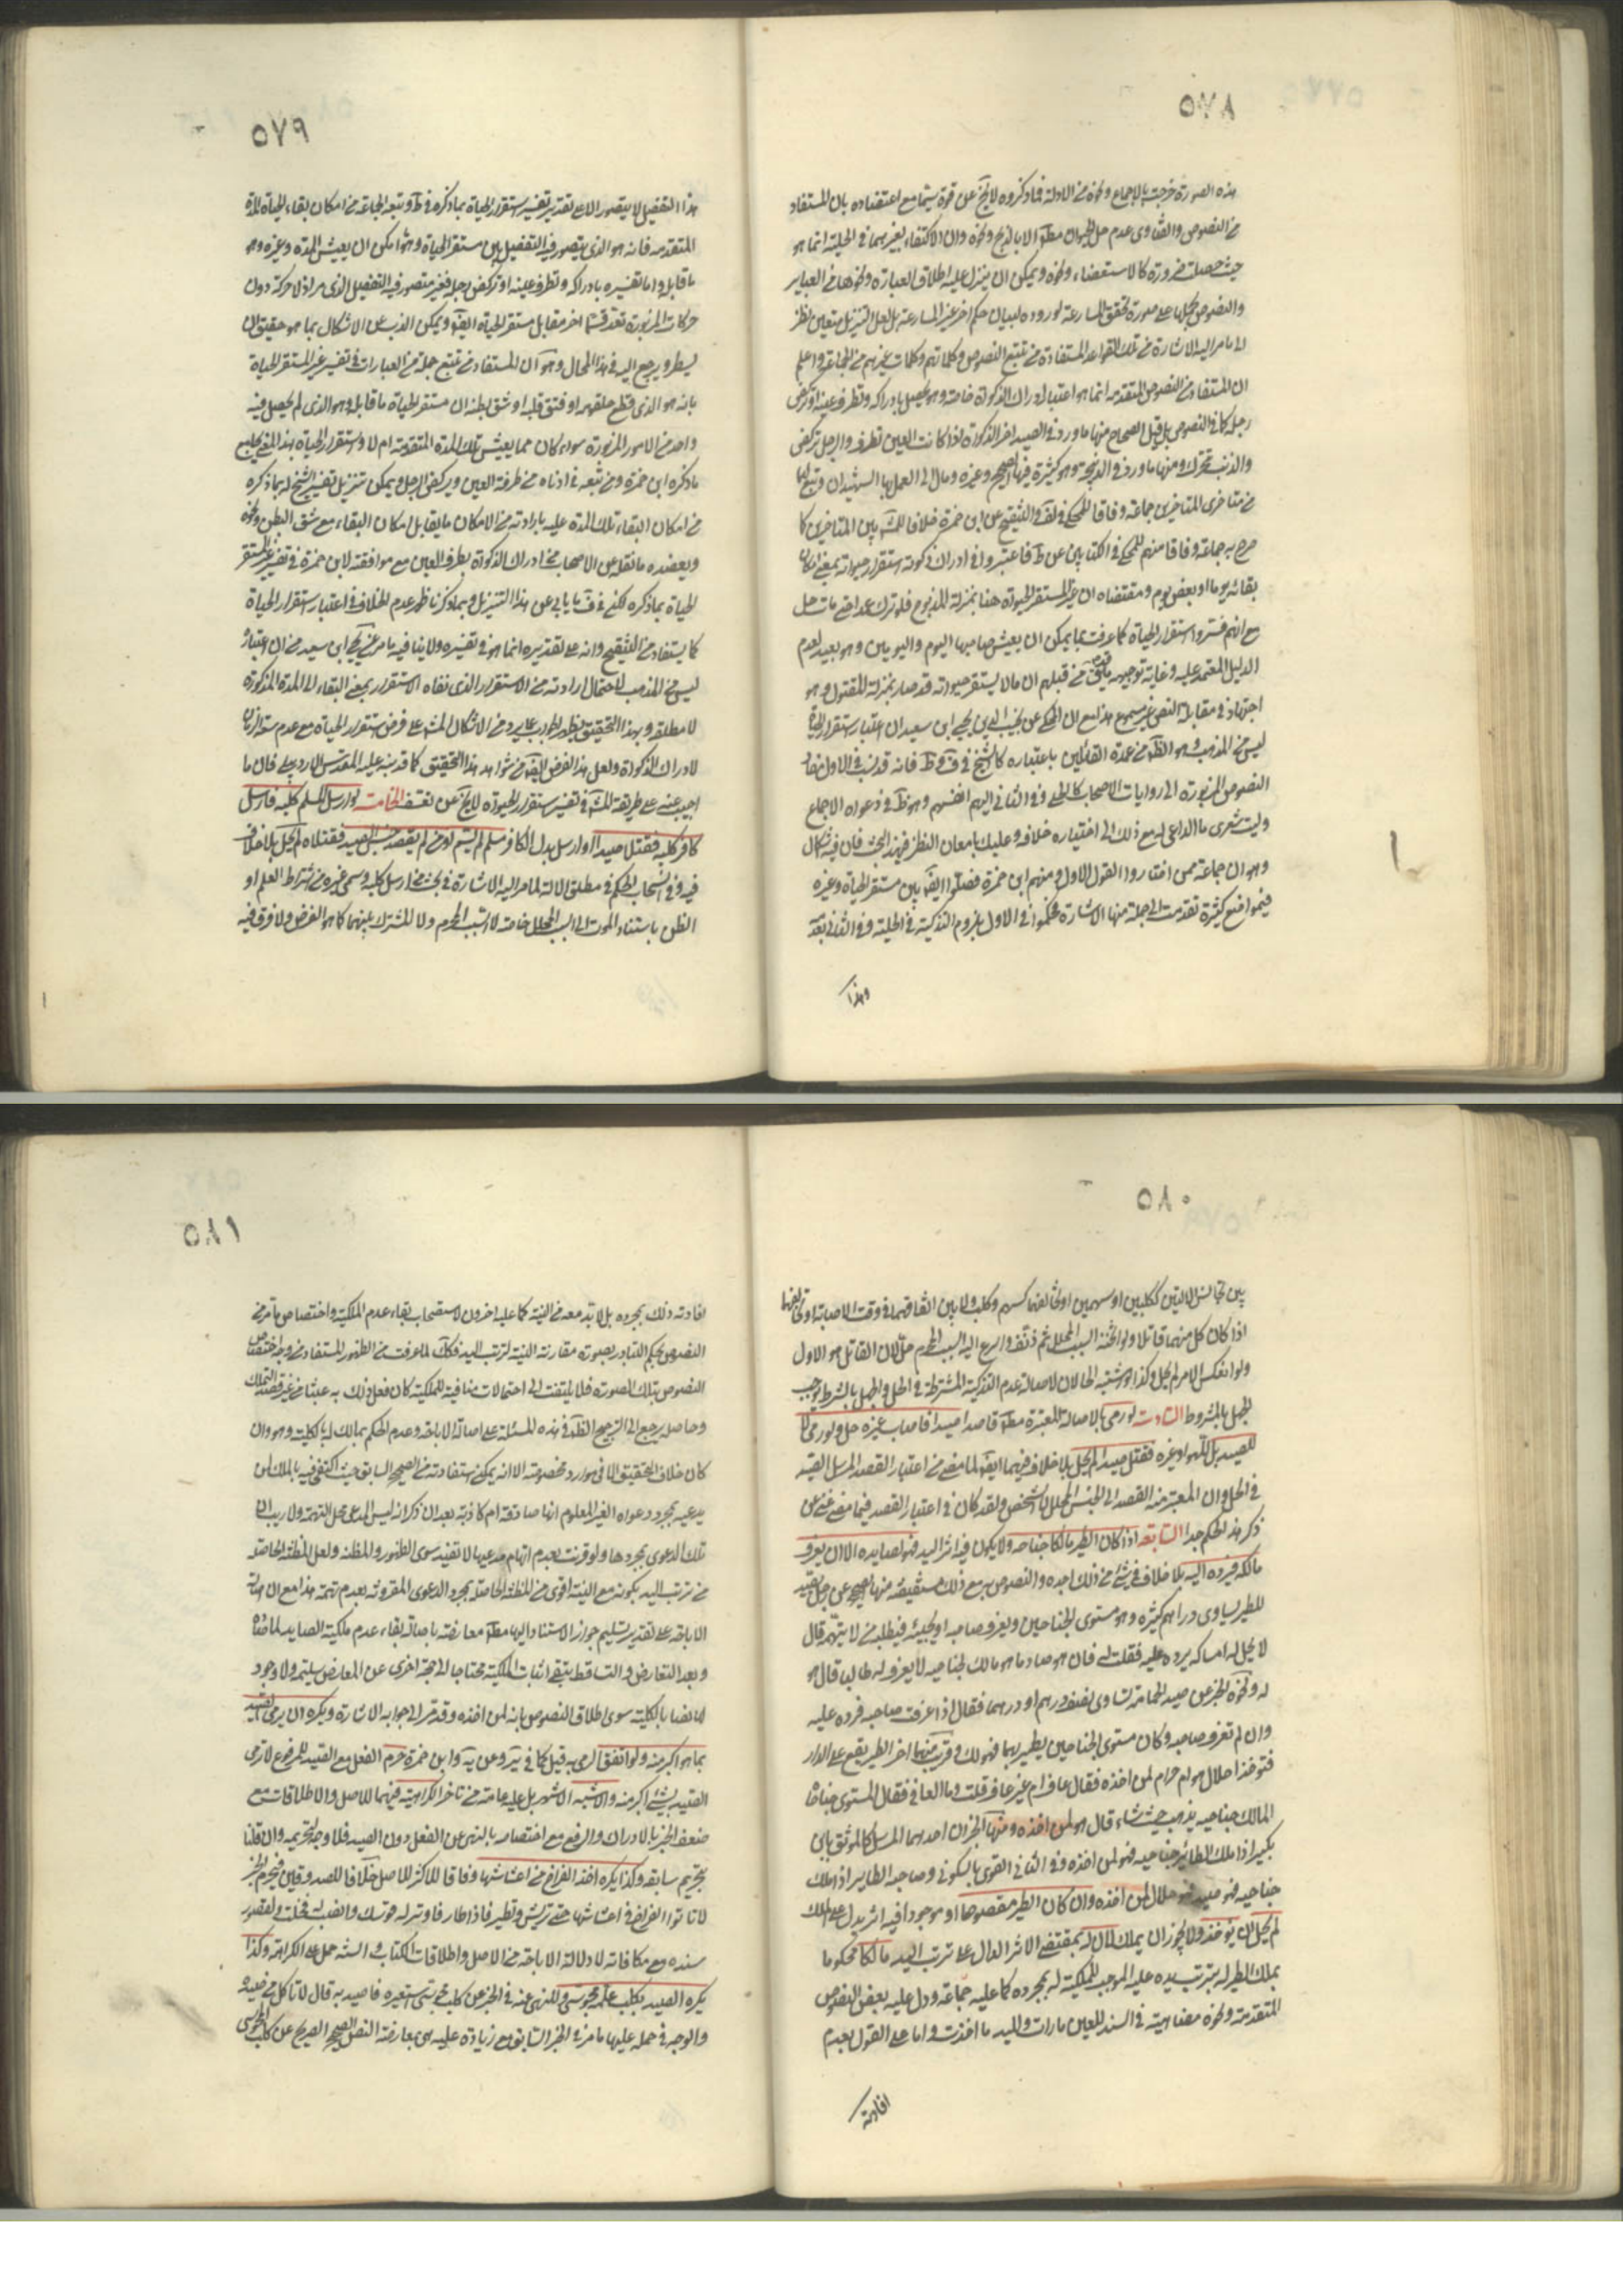 ٥٧٨
هذه الصورة خرجت بالاجماع ونحوه من الادلة فما ذكروه لا يخ عن قوة سيّما مع اعتضاده بان المستفاد
من النصوص والفتاوى عدم حل الحيوان مطلقا الا بالذبح ونحوه وان الاكتفاء بغيرهما في الحلية انما هو
حيث حصلت ضرورة كالاستعصاء ونحوه ويمكن ان ينزل عليه اطلاق العبارة ونحوها من العباير
والنصوص بحملها على صورة تحقق المسارعة لوروده لبيان حكم اخر غير المسارعة بل لعل التنزيل متعين نظر
الى ما مر اليه الاشارة من تلك القواعد المستفادة من تتبع النصوص وكلماتهم وكلمات غيرهم من الجماعة واعلم
ان المستفاد من النصوص المتقدمة انما هو اعتبار ادراك الذكوة خاصة وهو يحصل بادراكه وتطرف عينه او تركض
رجله كما في النصوص بل قيل الصحاح منها ما ورد في الصيد اخر الذكوة اذا كانت العين تطرف والرجل تركض
والذنب تتحرك ومنها ما ورد في الذبيحة وهو كثيرة فيها الصحيح وغيره ومال الى العمل بها الشهيدان وتبعهما
من متاخرى المتاخرين جماعة وفاقا للمحكى في لف والتنقيح عن ابن حمزة خلافا للشه بين المتاخرين كما
صرح به جماعة وفاقا منهم للمحكى في الكتابين عن ط فاعتبروا في ادراك ذكوته استقرار حيوته بمعنى امكان
بقائه يوما او بعض يوم ومقتضاه ان غير المستقر الحيوة هنا بمنزلة المذبوح فلو ترك عمدا حتى مات حل
مع انهم فسروا استقرار الحياة كما عرفت بما يمكن ان يعيش صاحبها اليوم واليومين وهو بعيد لعدم
الدليل المعتمد عليه وغاية توجيهه من قبلهم ان ما لا يستقر حيوته قد صار بمنزلة المقتول وهو
اجتهاد في مقابلة النص غير مسموع هذا مع ان المحكى عن نجيب الدين يحيى ابن سعيد ان اعتبار استقرار الحياة
ليس من المذهب وهو الظ من عمدة القائلين باعتباره كالشيخ في ف وط فانه قد نسب في الاول مفاد
النصوص المزبورة الى روايات الاصحاب كالحلى وفي الثاني اليهم انفسهم وهو ظ في دعواه الاجماع
وليت شعرى ما الداعى له مع ذلك الى اختياره خلافه وعليك بامعان النظر في هذا البحث فان فيه اشكال
وهو ان جماعة ممن اختاروا القول الاول ومنهم ابن حمزة فصلوا ايضا بين مستقر الحياة وغيره
في مواضع كثيرة تقدمت الى جملة منها الاشارة فحكموا في الاول بلزوم التذكية في الحلية وفي الثاني بعد
وهذا
٥٧٩
هذا التفصيل لا يتصور الا على تقدير تفسير استقرار الحياة بما ذكره في ط وتبعه الجماعة من امكان بقاء الحياة المدة
المتقدمة فانه هو الذى يتصور فيه التفصيل بين مستقر الحياة وهو ما يمكن ان يعيش المدة وغيره وهو
ما قابله واما تفسيره بادراكه وتطرف عينه او تركض رجله فغير متصور فيه التفصيل الذى مر اذ لا حركة دون
حركات المزبورة تعد قسما اخر مقابل مستقر الحياة ايضا ويمكن الذب عن الاشكال بما هو حقيق ان
يسطر ويرجع اليه في هذا المجال وهو ان المستفاد من تتبع جملة من العبارات في تفسير غير المستقر الحياة
بانه هو الذى قطع حلقومه او فتق قلبه او شق بطنه ان مستقر الحياة ما قابله وهو الذى لم يحصل فيه
واحد من الامور المزبورة سواء كان مما يعيش تلك المدة المتقدمة ام لا واستقرار الحياة بهذا المعنى يجامع
ما ذكره ابن حمزة ومن تبعه في ادناه من طرفة العين وركض الرجل ويمكن تنزيل تفسير الشيخ له بما ذكره
من امكان البقاء تلك المدة عليه بارادته من الامكان ما يقابل امكان البقاء مع شق البطن ونحوه
ويعضده ما نقله عن الاصحاب من ادراك الذكوة بطرف العين مع موافقته لابن حمزة في تفسير غير المستقر
الحياة بما ذكره لكنه في ف يابى عن هذا التنزيل وبما ذكرنا ظهر عدم الخلاف في اعتبار استقرار الحياة
كما يستفاد من التنقيح وانه على تقديره انما هو في تفسيره ولا ينافيه ما مر عن يحيى ابن سعيد من ان اعتباره
ليس من المذهب لاحتمال ارادته من الاستقرار الذى نفاه الاستقرار بمعنى البقاء الى المدة المذكورة
لا مطلقه وبهذا التحقيق يظهر الجواب عما يرد من الاشكال المشهور على فرض استقرار الحياة مع عدم سعة الزمان
لادراك الذكوة ولعل هذا الفرض ايضا من شواهد هذا التحقيق كما قد نبه عليه المقدس الاردبيلى فان ما
اجيب عنه على طريقة الشه في تفسير استقرار الحيوة لا يخ عن تعسف الخامسة لو ارسل المسلم كلبه فارسل
كافر كلبه فقتلا صيدا او ارسل بدل الكافر مسلم لم يسم او من لم يقصد جنس الصيد فقتلاه لم يحل بلا خلاف
فيه وفي انسحاب الحكم في مطلق الالة لما مر اليه الاشارة في بحث من ارسل كلبه وسمى غيره من اشتراط العلم او
الظن باستناد الموت الى السبب المحلل خاصة لا السبب المحرم ولا المشترك بينهما كما هو الفرض ولا فرق فيه
٥٨٠
بين تجانس الالتين ككلبين او سهمين او تخالفهما كسهم وكلب ولا بين اتفاقهما في وقت الاصابة او تخالفهما
اذا كان كل منهما قاتلا ولو اثخنه السبب المحلل ثم ذفف واسرع اليه السبب المحرم حل لان القاتل هو الاول
ولو انعكس الامر لم يحل وكذا لو اشتبه الحالان لاصالة عدم التذكية المشترطة في الحل والجهل بالشرط يوجب
الجهل بالمشروط السادسة لو رمى بالاصالة المعتبرة مطلقا قاصدا صيدا فاصاب غيره حل ولو رمى لا
للصيد بل للهو او غيره فقتل صيدا لم يحل بلا خلاف فيهما ايضا لما مضى من اعتبار القصد المرسل الصيد
في الحل وان المعتبر منه القصد الى الجنس المحلل لا الشخص ولقد كان في اعتبار القصد فيما مضى غنى عن
ذكر هذا الحكم جدا السابعة اذا كان الطير مالكا جناحه ولا يكون فيه اثر اليد فهو لصايده الا ان يعرف
مالكه فيرده اليه بلا خلاف في شئ من ذلك اجده والنصوص به مع ذلك مستفيضة منها الصحيح عن رجل يصيد
الطير يساوى دراهم كثيرة وهو مستوى الجناحين ويعرف صاحبه او يجيئه فيطلبه من لا يتهمه قال
لا يحل له امساكه يرده عليه فقلت له فان هو صاد ما هو مالك لجناحيه لا يعرف له طالبا قال هو
له ونحوه الخبر عن صيد الحمامة تساوى نصف درهم او درهما فقال اذا عرفت صاحبه فرده عليه
وان لم تعرف صاحبه وكان مستوى الجناحين يطير بهما فهو لك وقريب منهما اخر الطير يقع على الدار
فتؤخذ احلال هو ام حرام لمن اخذه فقال عاف ام غير عاف قلت وما العافى فقال المستوى جناحاه
المالك جناحيه يذهب حيث شاء قال هو لمن اخذه ومنها الخبران احدهما المرسل كالموثق بابن
بكير اذا ملك الطائر جناحيه فهو لمن اخذه وفي الثانى القوى بالسكونى وصاحبه الطاير اذا ملك
جناحيه فهو صيد فهو حلال لمن اخذه وان كان الطير مقصوصا او موجودا فيه اثر يدل على الملك
لم يحل ان يؤخذ ولا يجوز ان يملك لان له بمقتضى الاثر الدال على ترتب اليد مالكا محكوما
بملك الطير له بترتب يده عليه الموجب للملكية له بمجرده كما عليه جماعة ودل عليه بعض النصوص
المتقدمة ونحوه مضاهيته في السند للعين ما رات ولليد ما اخذت واما على القول بعدم
افادته
٥٨١
افادته ذلك بمجرده بل لا بد معه من النية كما عليه اخرون لاستصحاب بقاء عدم الملكية واختصاص ما مر من
النصوص بحكم التبادر بصورة مقارنة النية لترتب اليد فكك لما عرفت من الظهور المستفاد من وجه اختصاص
النصوص بتلك الصورة فلا يلتفت الى احتمالات منافية للملكية كان فعل ذلك به عبثا من غير قصد التملك
وحاصله يرجع الى ترجيح الظ في هذه المسئلة على اصالة الاباحة وعدم الحكم بمالك له بالكلية وهو وان
كان خلاف التحقيق الا في موارد مخصوصة الا انه يمكن استفادته من الصحيح السابق حيث اكتفى فيه بالملك لمن
يدعيه بمجرد دعواه الغير المعلوم انها صادقة ام كاذبة بعد ان ذكر انه ليس المدعى محل التهمة ولا ريب ان
تلك الدعوى بمجردها ولو قرنت بعدم اتهام مدعيها لا تفيد سوى الظهور والمظنة ولعل المظنة الحاصلة
من ترتب اليد بكونه مع النية اقوى من المظنة الحاصلة بمجرد الدعوى المقرونة بعدم تهمة هذا مع ان اصالة
الاباحة على تقدير تسليم جواز الاستناد اليها مطلقا معارضة باصالة بقاء عدم ملكية الصايد لما صاده
وبعد التعارض والتساقط يبقى اثبات الملكية محتاجا الى حجة اخرى عن المعارض سليمة ولا وجود
لها نصا بالكلية سوى اطلاق النصوص بانه لمن اخذه وقد مر الى جوابه الاشارة ويكره ان يرمى الصيد
بما هو اكبر منه ولو اتفق الرمى به قيل كما في ير وعن يه وابن حمزة حرم الفعل مع الصيد للمرفوع لا ترمى
الصيد بشئ اكبر منه والاشبه الاشهر بل عليه عامة من تاخر الكراهية فيهما للاصل والاطلاقات مع
ضعف الخبر بالادراك والرفع مع اختصاصه بالنهى عن الفعل دون الصيد فلا وجه لتحريمه وان قلنا
بتحريم سابقه وكذا يكره اخذ الفراخ من اعشاشها وفاقا للاكثر للاصل خلافا للصدوقين فيحرم للخبر
لا تاتوا الفراخ في اعشاشها حتى تريش وتطير فاذا طار فاوتر له قوسك وانصب له فخك ولقصور
سنده مع مكافاته لادلة الاباحة من الاصل واطلاقات الكتاب والسنة حمل على الكراهة وكذا
يكره الصيد بكلب علمه مجوسى وللنهى عنه في الخبر عن كلب مجوسى استعيره فاصيد به قال لا تاكل من صيده
والوجه في حمله عليها ما مر في الخبر السابق مع زيادة عليه هى بمعارضته النص الصحيح الصريح عن كلب المجوسى